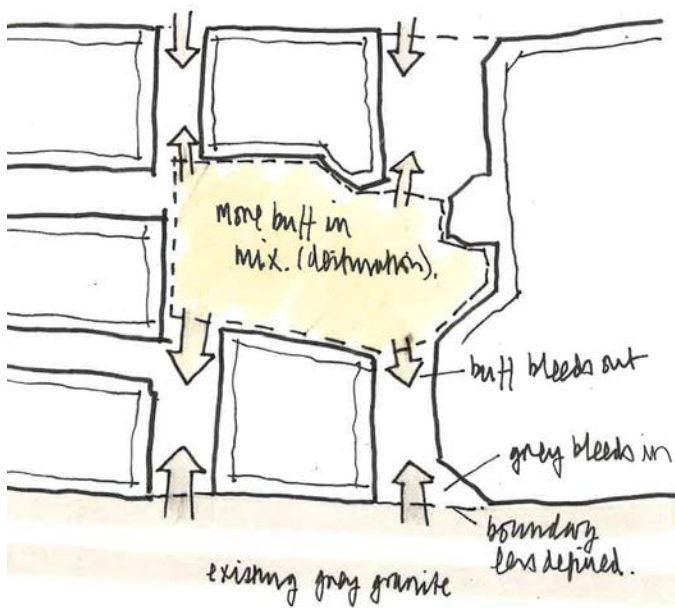 more buff in
mix. (destination).
buff bleeds out
grey bleeds in
boundary
less defined.
existing grey granite